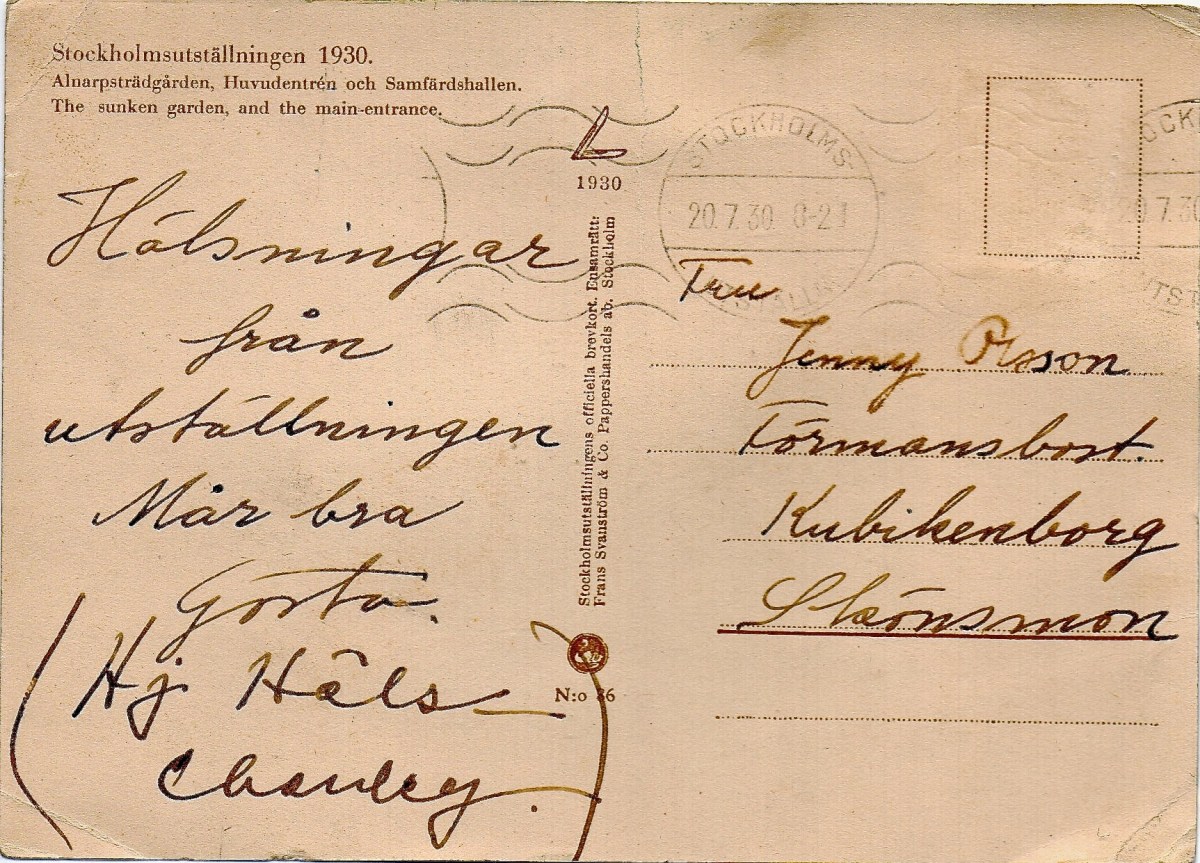 Stockholmsutställningen 1930.
Alnarpsträdgården, Huvudentrén och Samfärdshallen.
The sunken garden, and the main-entrance.
Hälsningar
från
utställningen
Mår bra
Gösta.
(Hj Häls
Charley.)
1930
Stockholmsutställningens officiella brevkort. Ensamrätt:
Frans Svanström & Co. Pappershandels ab. Stockholm
N:o 86
STOCKHOLMS
20.7.30 8-21
Fru
Jenny Olsson
Förmansbost.
Kubikenborg
Skönsmon
20 7 30